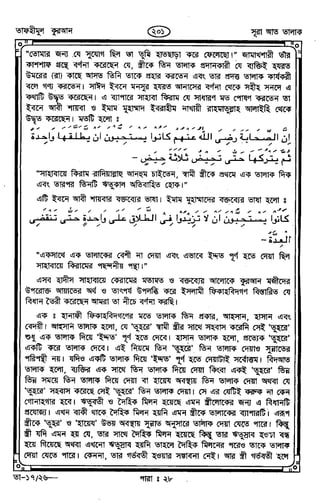 তাফহীমুল কুরআন
২০১
সূরা আত তালাক
“তোমার জন্য যে সুযোগ ছিল তা তুমি হাতছাড়া করে ফেলেছো।” জামাখশারী তাঁর
কাশশাফ গ্রন্থে বর্ণনা করেছেন যে, স্ত্রীকে তিন তালাক প্রদানকারী যে ব্যক্তিই হযরত
উমরের (রা) কাছে আসত তিনি তাকে প্রহার করতেন এবং তার প্রদত্ত তালাক কার্যকরী
বলে গণ্য করতেন। সাঈদ ইবনে মনসুর হযরত আনাসের বর্ণনা থেকে সহীহ সনদে এ
কথাটি উদ্ধৃত করেছেন। এ ব্যাপারে সাহাবা কিরাম যে সাধারণ মত পোষণ করতেন তা
ইবনে আবী শায়বা ও ইমাম মুহাম্মাদ ইবরাহীম নাখয়ী রাহমাতুল্লাহ আলাইহি থেকে
উদ্ধৃত করেছেন। মতটি হলো :
إن الصحابة رضى الله عنهم كانوا يستحبون ان يطلقها واحدة
ثم يتركها حتى تحيض ثلاثة حيض -
“সাহাবায়ে কিরাম রাদিয়াল্লাহ আনহুম চাইতেন, স্বামী স্ত্রীকে প্রথমে এক তালাক দিক
এবং তারপর তিনটি ঋতুকাল অতিবাহিত হোক।”
এটি ইবনে আবী শায়বার বক্তব্যের ভাষা। ইমাম মুহাম্মাদের বক্তব্যের ভাষা হলো :
كانوا يستحبون ان لا تزيدوا فى الطلاق على واحدة حتى تنقضى
العدة -
“একসাথে এক তালাকের বেশী না দেয়া এবং এভাবে ইদ্দত পূর্ণ হতে দেয়া ছিল
সাহাবায়ে কিরামের পছন্দনীয় পন্থা।”
এসব হাদীস সাহাবায়ে কেরামের মতামত ও বক্তব্যের আলোকে কুরআন মজীদের
উপরোক্ত আয়াতের অর্থ ও তাৎপর্য উপলব্ধি করে ইসলামী ফিকাহবিদগণ বিস্তারিত যে
বিধান তৈরী করেছেন আমরা তা নীচে বর্ণনা করছি।
এক : হানাফী ফিকাহবিদগণের মতে তালাক তিন প্রকার, আহসান, হাসান এবং
বেদয়ী। আহসান তালাক হলো, যে ‘তুহরে’ স্বামী স্ত্রীর সাথে সহবাস করেনি সেই ‘তুহরে’
শুধু এক তালাক দিয়ে ‘ইদ্দত’ পূর্ণ হতে দেবে। হাসান তালাক হলো, প্রত্যেক ‘তুহরে’
একটি করে তালাক দেবে। এই নিয়মে তিন ‘তুহরে’ তিন তালাক দেয়াও সুন্নাতের
পরিপন্থী নয়। যদিও একটি তালাক দিয়ে ‘ইদ্দত’ পূর্ণ হতে দেয়াটাই সর্বোত্তম। বিদআত
তালাক হলো, ব্যক্তির এক সাথে তিন তালাক দিয়ে দেয়া কিংবা একই ‘তুহরে’ ভিন্ন
ভিন্ন সময়ে তিন তালাক দিয়ে দেয়া বা হায়েয অবস্থায় তিন তালাক দেয়া অথবা যে
‘তুহরে’ সহবাস করেছে সেই ‘তুহরে’ তিন তালাক দেয়া। সে এর যেটিই করুক না কেন
গোনাহগার হবে। ঋতুবতী ও দৈহিক মিলন হয়েছে এমন স্ত্রীলোকের জন্য এ বিধানটি
প্রযোজ্য। এখন বাকী থাকে দৈহিক মিলন হয়নি এমন স্ত্রীকে তালাকের ব্যাপারটি। এরূপ
স্ত্রীকে ‘তুহরে’ ও ‘হায়েয’ উভয় অবস্থায় সুন্নাত অনুসারে তালাক দেয়া যেতে পারে। কিন্তু
স্ত্রী যদি এমন হয় যে, তার সাথে দৈহিক মিলন হয়েছে কিন্তু তার ঋতুস্রাব হওয়া বন্ধ
হয়ে গিয়েছে অথবা এখনো ঋতুস্রাব হয়নি তাহলে দৈহিক মিলনের পরেও তাকে তালাক
দেয়া যেতে পারে। কেননা, তার গর্ভবতী হওয়ার সম্ভাবনা নেই। আর স্ত্রী গর্ভবতী হলে
তা—১৭/২৬—
পারা : ২৮